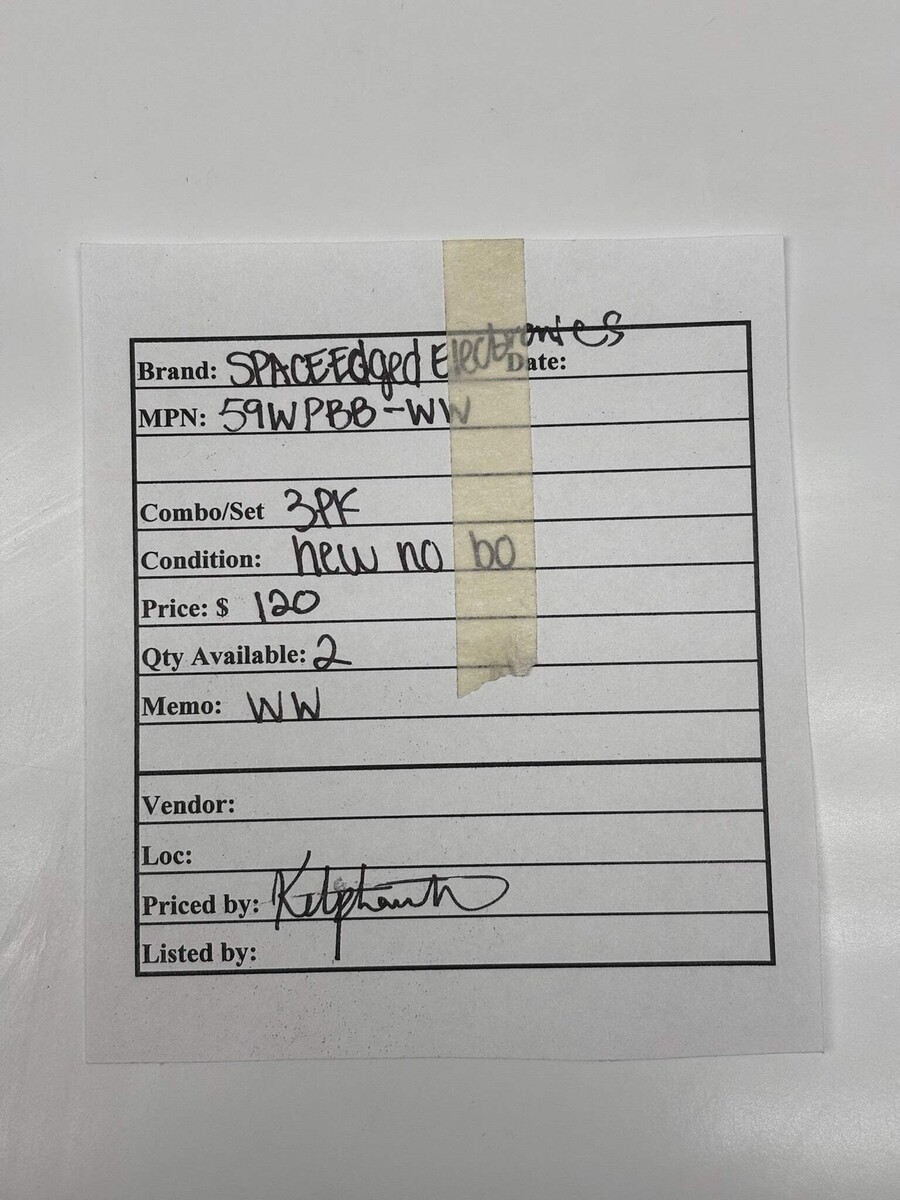 Brand: SPACEEdged Electronics Date:
MPN: 59WPBB-WW
Combo/Set 3PK
Condition: new no bo
Price: $ 120
Qty Available: 2
Memo: WW
Vendor:
Loc:
Priced by:
Listed by: